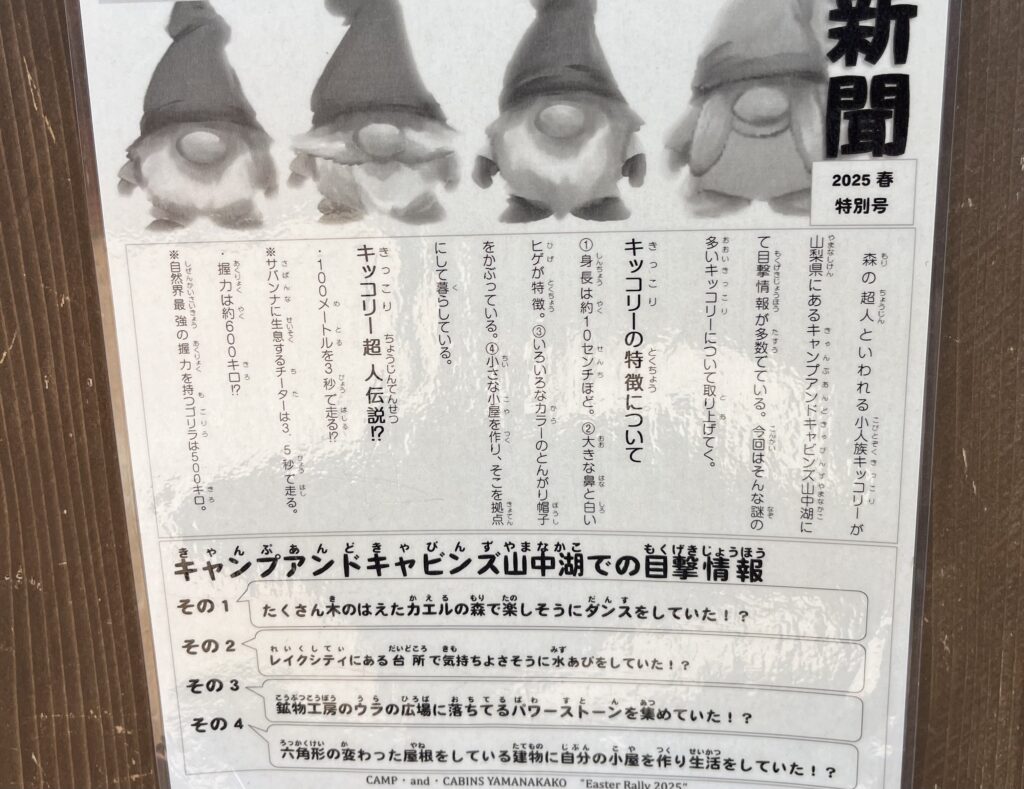 新聞
2025 春
特別号
森の超人といわれる小人族キッコリーが
山梨県にあるキャンプアンドキャビンズ山中湖に
て目撃情報が多数でている。今回はそんな謎の
多いキッコリーについて取り上げてく。
キッコリーの特徴について
①身長は約10センチほど。②大きな鼻と白い
ヒゲが特徴。③いろいろなカラーのとんがり帽子
をかぶっている。④小さな小屋を作り、そこを拠点
にして暮らしている。
キッコリー超人伝説!?
・100メートルを3秒で走る!?
※サバンナに生息するチーターは3.5秒で走る。
・握力は約600キロ!?
※自然界最強の握力を持つゴリラは500キロ。
キャンプアンドキャビンズ山中湖での目撃情報
その1 たくさん木のはえたカエルの森で楽しそうにダンスをしていた！？
その2 レイクシティにある台所で気持ちよさそうに水あびをしていた！？
その3 鉱物工房のウラの広場に落ちてるパワーストーンを集めていた！？
その4 六角形の変わった屋根をしている建物に自分の小屋を作り生活をしていた！？
CAMP・and・CABINS YAMANAKAKO "Easter Rally 2025"